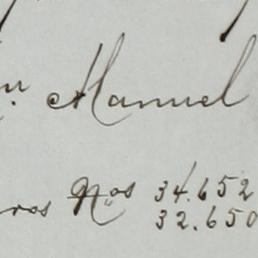 Manuel
Nos 34.652
32.650